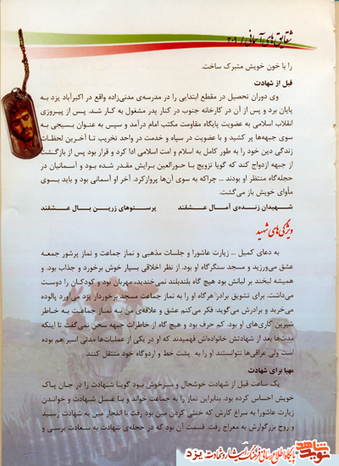 شقایق‌های آسمانی / ۲۰۸
را با خون خویش متبرک ساخت.
قبل از شهادت
وی دوران تحصیل در مقطع ابتدایی را در مدرسه‌ی مدنی‌زاده واقع در اکبرآباد یزد به
پایان برد و پس از آن در کارخانه جنوب در کنار پدر مشغول به کار شد. پس از پیروزی
انقلاب اسلامی به عضویت پایگاه مقاومت مکتب امام درآمد و سپس به عنوان بسیجی به
سوی جبهه‌ها پر کشید و با عضویت در سپاه و خدمت در واحد تخریب تا آخرین لحظات
زندگی دین خود را به طور کامل به اسلام و امت اسلامی ادا کرد و قرار بود پس از بازگشت
از جبهه ازدواج کند که گویا تزویج با حورالعین برایش مقدر شده بود و آسمانیان در
حجله‌گاه منتظر او بودند ... چراکه به سوی آن‌ها پروازکرد. آخر او آسمانی بود و باید بسوی
مأوای خویش باز می‌گشت.
شهیدان زنده‌ی آمال عشقند پرستوهای زرین بال عشقند
ویژگی‌های شهید
به دعای کمیل ... زیارت عاشورا و جلسات مذهبی و نماز جماعت و نماز پرشور جمعه
عشق می‌ورزید و مسجد سنگر گاه او بود. از نظر اخلاقی بسیار خوش برخورد و جذاب بود. و
همیشه لبخند بر لبانش بود هیچ گاه بلندبلند نمی‌خندید، مهربان بود و کودکان را دوست
می‌داشت. برای تشویق برادرها هرگاه او را به نماز جماعت مسجد برخوردار یزد می‌برد پالوده
می‌خرید و برادرش می‌گوید: فکر می‌کنم عشق و علاقه‌ی من به نماز جماعت به خاطر
شیرین کاری‌های او بود. کم حرف بود و هیچ گاه از خاطرات جبهه سخن نمی‌گفت تا اینکه
مدت‌ها بعد از شهادتش خانواده‌اش فهمیدند که او در یکی از عملیات‌ها مدتی اسیر هم بوده
است ولی عراقی‌ها نتوانستند او را به پشت خط و اردوگاه خود منتقل کنند.
مهیا برای شهادت
یک ساعت قبل از شهادت خوشحال و سرخوش بود گویا شهادت را در جان پاک
خویش احساس کرده بود. بنابراین نماز را به جماعت خواند و با غسل شهادت و خواندن
زیارت عاشورا به سراغ کارش که خنثی کردن مین بود رفت با انفجار مین به شهادت رسید
و روح بزرگوارش به معراج رفت. قسمت آن بود که در حجله‌ی شهادت به سعادت برسی و
نوید شاهد
یزد